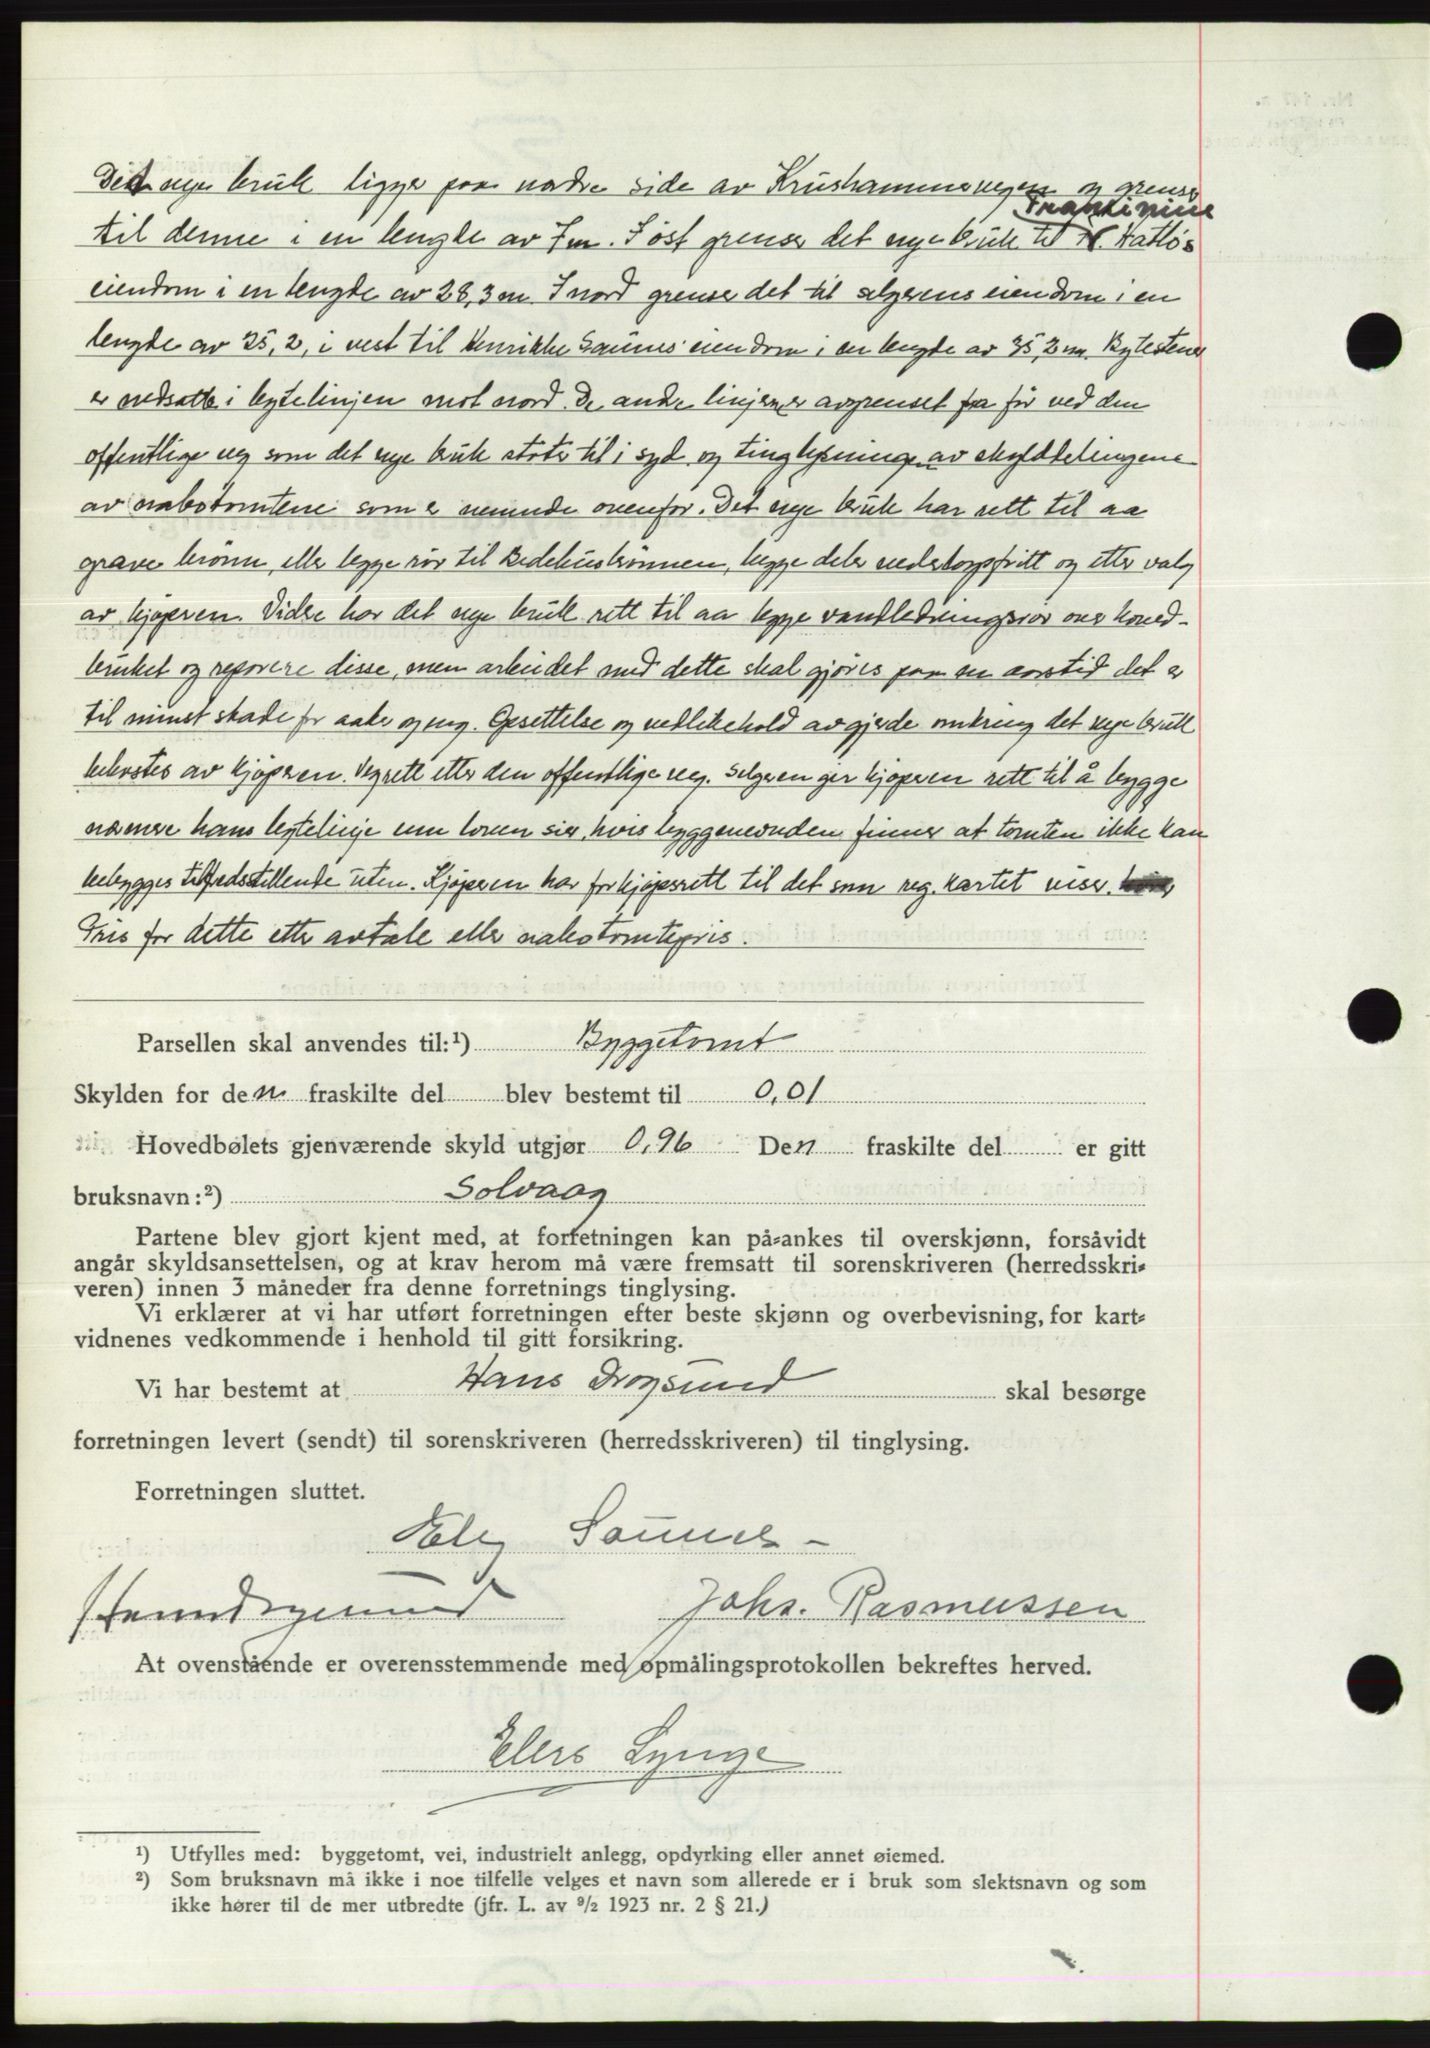 Det nye bruk ligger paa nordre side av Krushammervegen og grenser
Frantzine
til denne i en lengde av 7 m. I øst grenser det nye bruk til Hatløs
eiendom i en lengde av 28,3 m. I nord grenser det til selgerens eiendom i en
lengde av 25,2, i vest til Henrikke Saunes eiendom i en lengde av 35,2 m. Bytestener
er nedsatte i bytelinjen mot nord. De andre linjer er avgrenset fra før ved den
offentlige veg som det nye bruk støter til i syd og tinglysninger av skylddelingene
av nabotomtene som er nevnde ovenfor. Det nye bruk har rett til aa
grave brønn, eller legge rør til Bedehusbrønnen, begge deler vederlagsfritt og etter valg
av kjøperen. Videre har det nye bruk rett til aa legge vandledningsrør over hoved-
bruket og reparere disse, men arbeidet med dette skal gjøres paa en aarstid det er
til minst skade for aaker og eng. Opsettelse og vedlikehold av gjerde omkring det nye bruk
bekostes av kjøperen. Vegrett etter den offentlige veg. Selgeren gir kjøperen rett til å bygge
nærmere hans bytelinje enn loven sier, hvis byggenevnden finner at tomten ikke kan
bebygges tilfredsstillende uten. Kjøperen har forkjøpsrett til det som reg. kartet viser.
Pris for dette etter avtale eller nabotomtepris.
Parsellen skal anvendes til:¹) Byggetomt
Skylden for den fraskilte del blev bestemt til 0,01
Hovedbølets gjenværende skyld utgjør 0,96 Den fraskilte del er gitt
bruksnavn:²) Solvaag
Partene blev gjort kjent med, at forretningen kan på-ankes til overskjønn, forsåvidt
angår skyldsansettelsen, og at krav herom må være fremsatt til sorenskriveren (herredsskri-
veren) innen 3 måneder fra denne forretnings tinglysing.
Vi erklærer at vi har utført forretningen efter beste skjønn og overbevisning, for kart-
vidnenes vedkommende i henhold til gitt forsikring.
Vi har bestemt at Hans Dragsund skal besørge
forretningen levert (sendt) til sorenskriveren (herredsskriveren) til tinglysing.
Forretningen sluttet.
Saunes
Johs. Rasmussen
At ovenstående er overensstemmende med opmålingsprotokollen bekreftes herved.
Elers Lynge
¹) Utfylles med: byggetomt, vei, industrielt anlegg, opdyrking eller annet øiemed.
²) Som bruksnavn må ikke i noe tilfelle velges et navn som allerede er i bruk som slektsnavn og som
ikke hører til de mer utbredte (jfr. L. av 9/2 1923 nr. 2 § 21.)